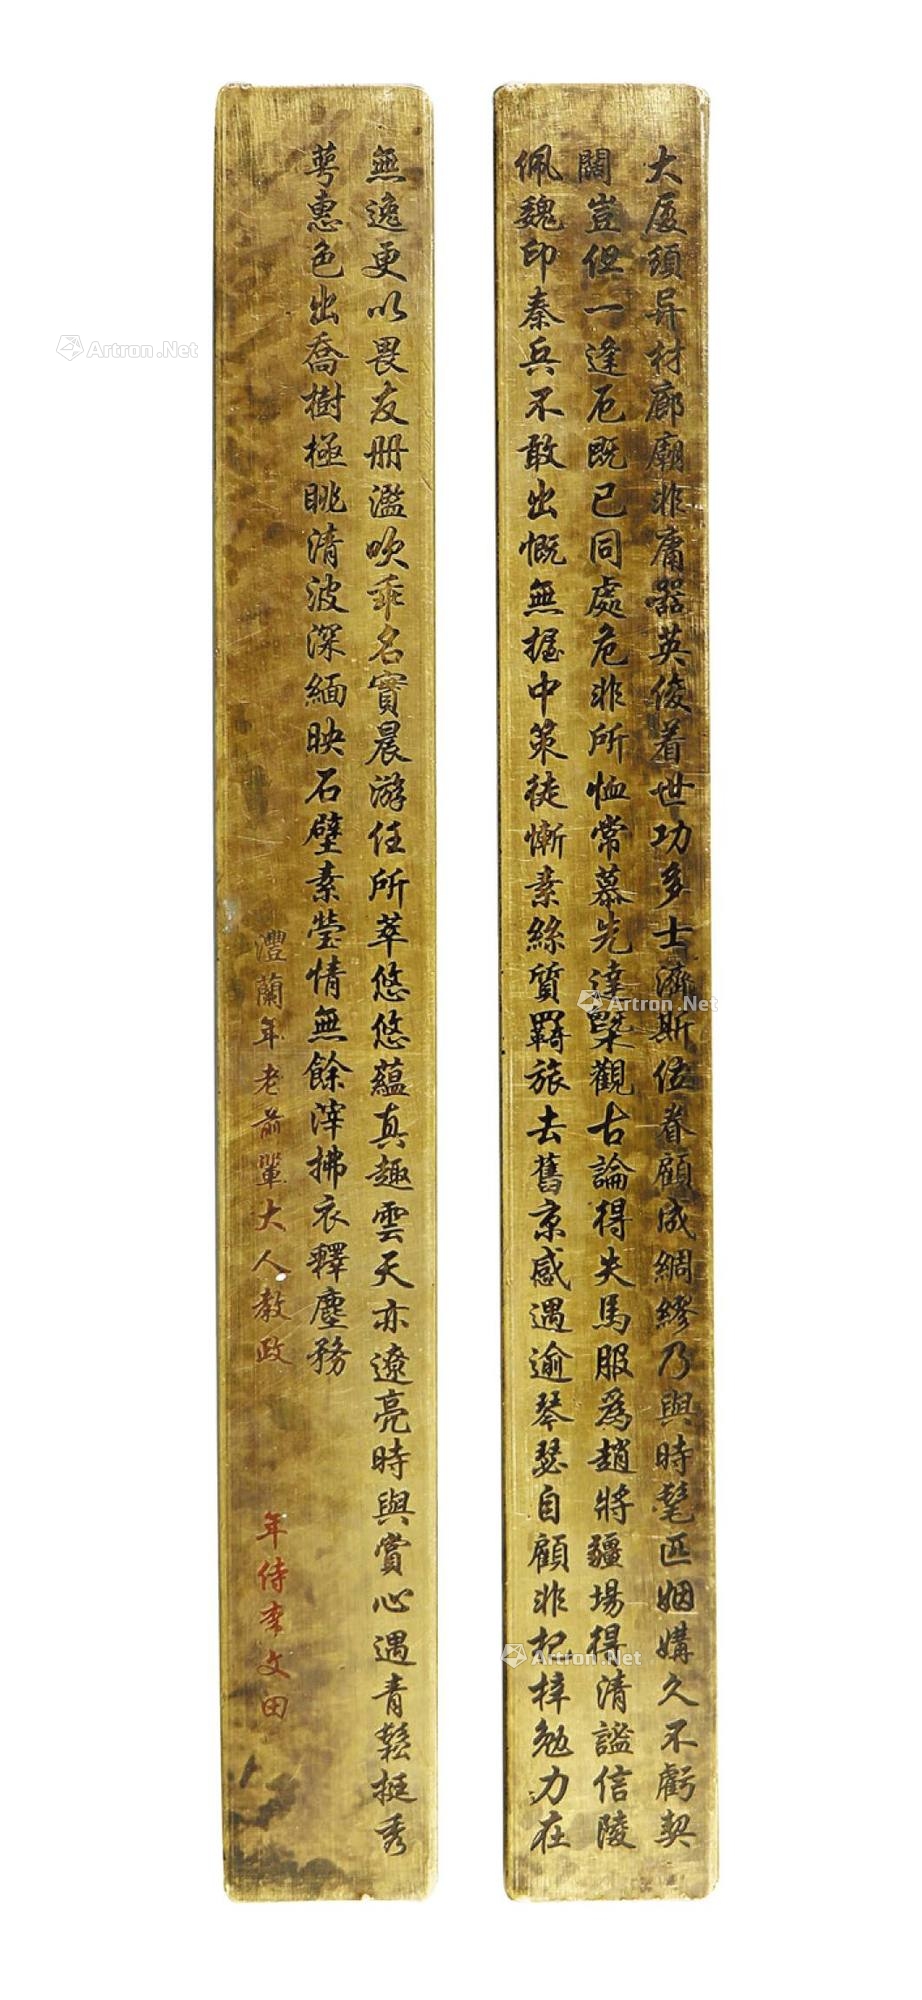 大廈須异材廊廟非庸器英俊着世功多士濟斯位眷顧成綢繆乃與時髦匹姻媾久不虧契
闊豈但一逢厄既已同處危非所恤常慕先達槩觀古論得失馬服爲趙將疆場得清謐信陵
佩魏印秦兵不敢出慨無握中策徒慚素絲質羇旅去舊京感遇逾琴瑟自顧非杞梓勉力在
無逸更以畏友册濫吹乖名實晨游任所萃悠悠蘊真趣雲天亦遼亮時與賞心遇青鬆挺秀
萼惠色出喬樹極眺清波深緬映石壁素瑩情無餘滓拂衣釋塵務
澧蘭年老前輩大人教政
年侍李文田
Artron.Net
Artron.Net
Artron.Net